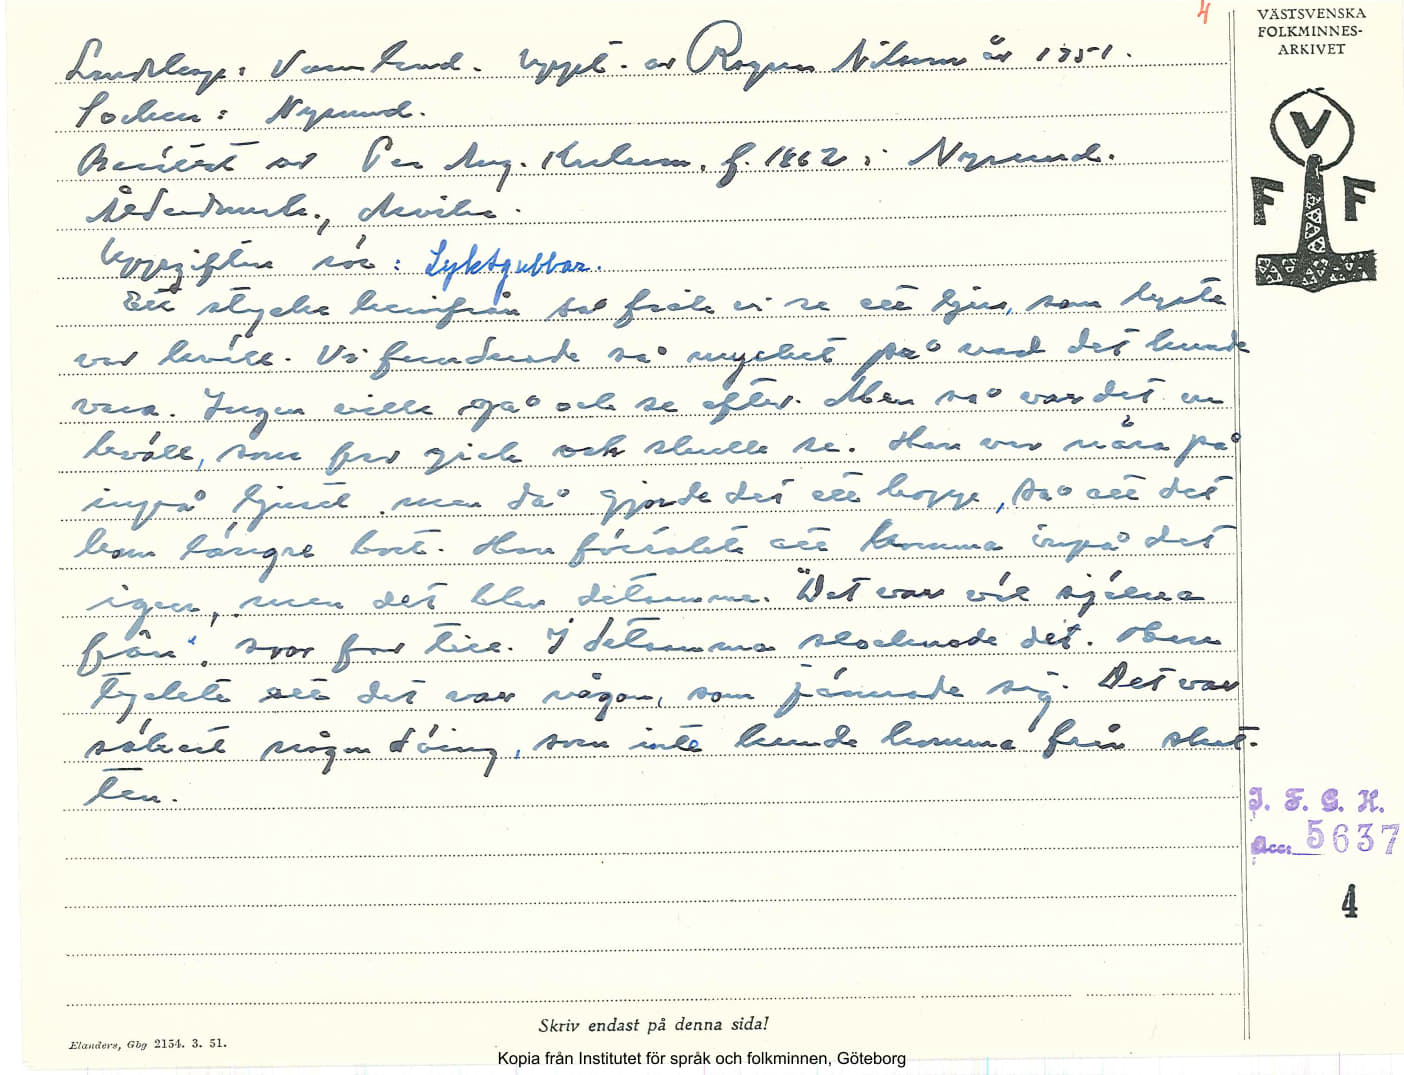 4
VÄSTSVENSKA
FOLKMINNES-
ARKIVET
V
F F
Landskap: Värmland. Uppt. av Ragnar Nilsson år 1951.
Socken: Nysund.
Berättat av Per Aug. f. 1862 i Nysund.
Åtorp.
Uppgiften rör: Lyktgubbar.
Ett stycke hemifrån så fick vi se ett ljus, som lyste
var kväll. Vi funderade så mycket på vad det kunde
vara. Ingen ville gå och se efter. Men så var det en
kväll, som far gick och skulle se. Han var nära på
inpå ljuset, men då gjorde det ett hopp, så att det
kom längre bort. Han försökte att komma inpå det
igen, men det blev detsamma. "Det var väl själva
fan", svor far till. I detsamma slocknade det. Han
tyckte att det var någon, som jämrade sig. Det var
säkert någon döing, som inte kunde komma från skat-
ten.
I. F. G. H.
Acc. 5637
4
Skriv endast på denna sida!
Elanders, Gbg 2154. 3. 51.
Kopia från Institutet för språk och folkminnen, Göteborg